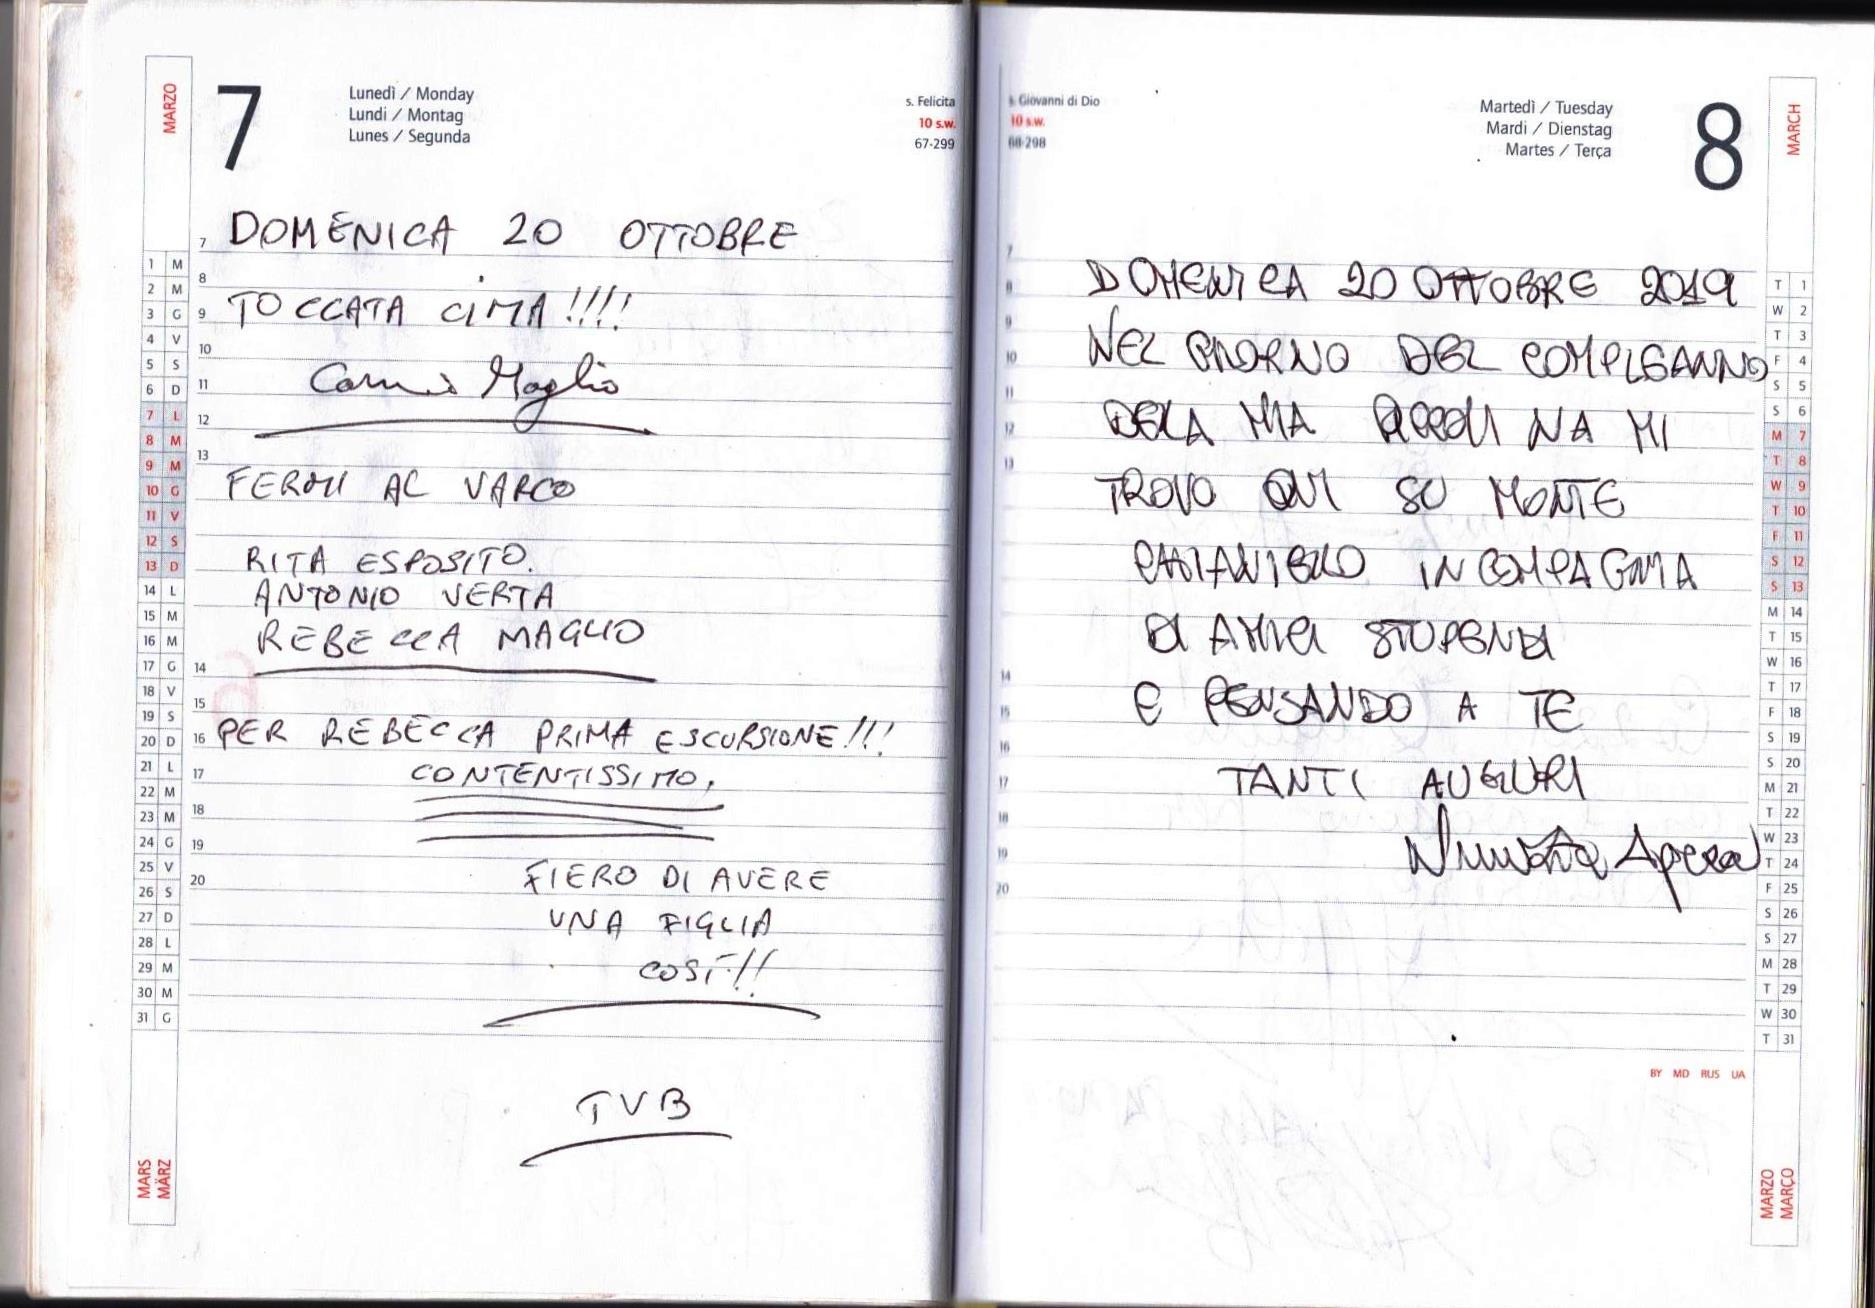 MARZO
7
Lunedì / Monday
Lundi / Montag
Lunes / Segunda
s. Felicita
10 s.w.
67-299
DOMENICA 20 OTTOBRE
TOCCATA CIMA!!!!
Maglio
FERMI AL VARCO
RITA ESPOSITO.
ANTONIO VERTA
REBECCA MAGLIO
PER REBECCA PRIMA ESCURSIONE!!!
CONTENTISSIMO.
FIERO DI AVERE
UNA FIGLIA
COSÌ!!
TVB
7
8
9
10
11
12
13
14
15
16
17
18
19
20
1 M
2 M
3 G
4 V
5 S
6 D
7 L
8 M
9 M
10 G
11 V
12 S
13 D
14 L
15 M
16 M
17 G
18 V
19 S
20 D
21 L
22 M
23 M
24 G
25 V
26 S
27 D
28 L
29 M
30 M
31 G
MARS
MÄRZ
s. Giovanni di Dio
10 s.w.
68-298
Martedì / Tuesday
Mardi / Dienstag
Martes / Terça
8
MARCH
DOMENICA 20 OTTOBRE 2019
NEL GIORNO DEL COMPLEANNO
DELLA MIA PICCOLINA MI
TROVO QUI SU MONTE
IN COMPAGNIA
DI AMICI STUPENDI
E PENSANDO A TE
TANTI AUGURI
Nunzia
7
8
9
10
11
12
13
14
15
16
17
18
19
20
T 1
W 2
T 3
F 4
S 5
S 6
M 7
T 8
W 9
T 10
F 11
S 12
S 13
M 14
T 15
W 16
T 17
F 18
S 19
S 20
M 21
T 22
W 23
T 24
F 25
S 26
S 27
M 28
T 29
W 30
T 31
BY MD RUS UA
MARZO
MARÇO